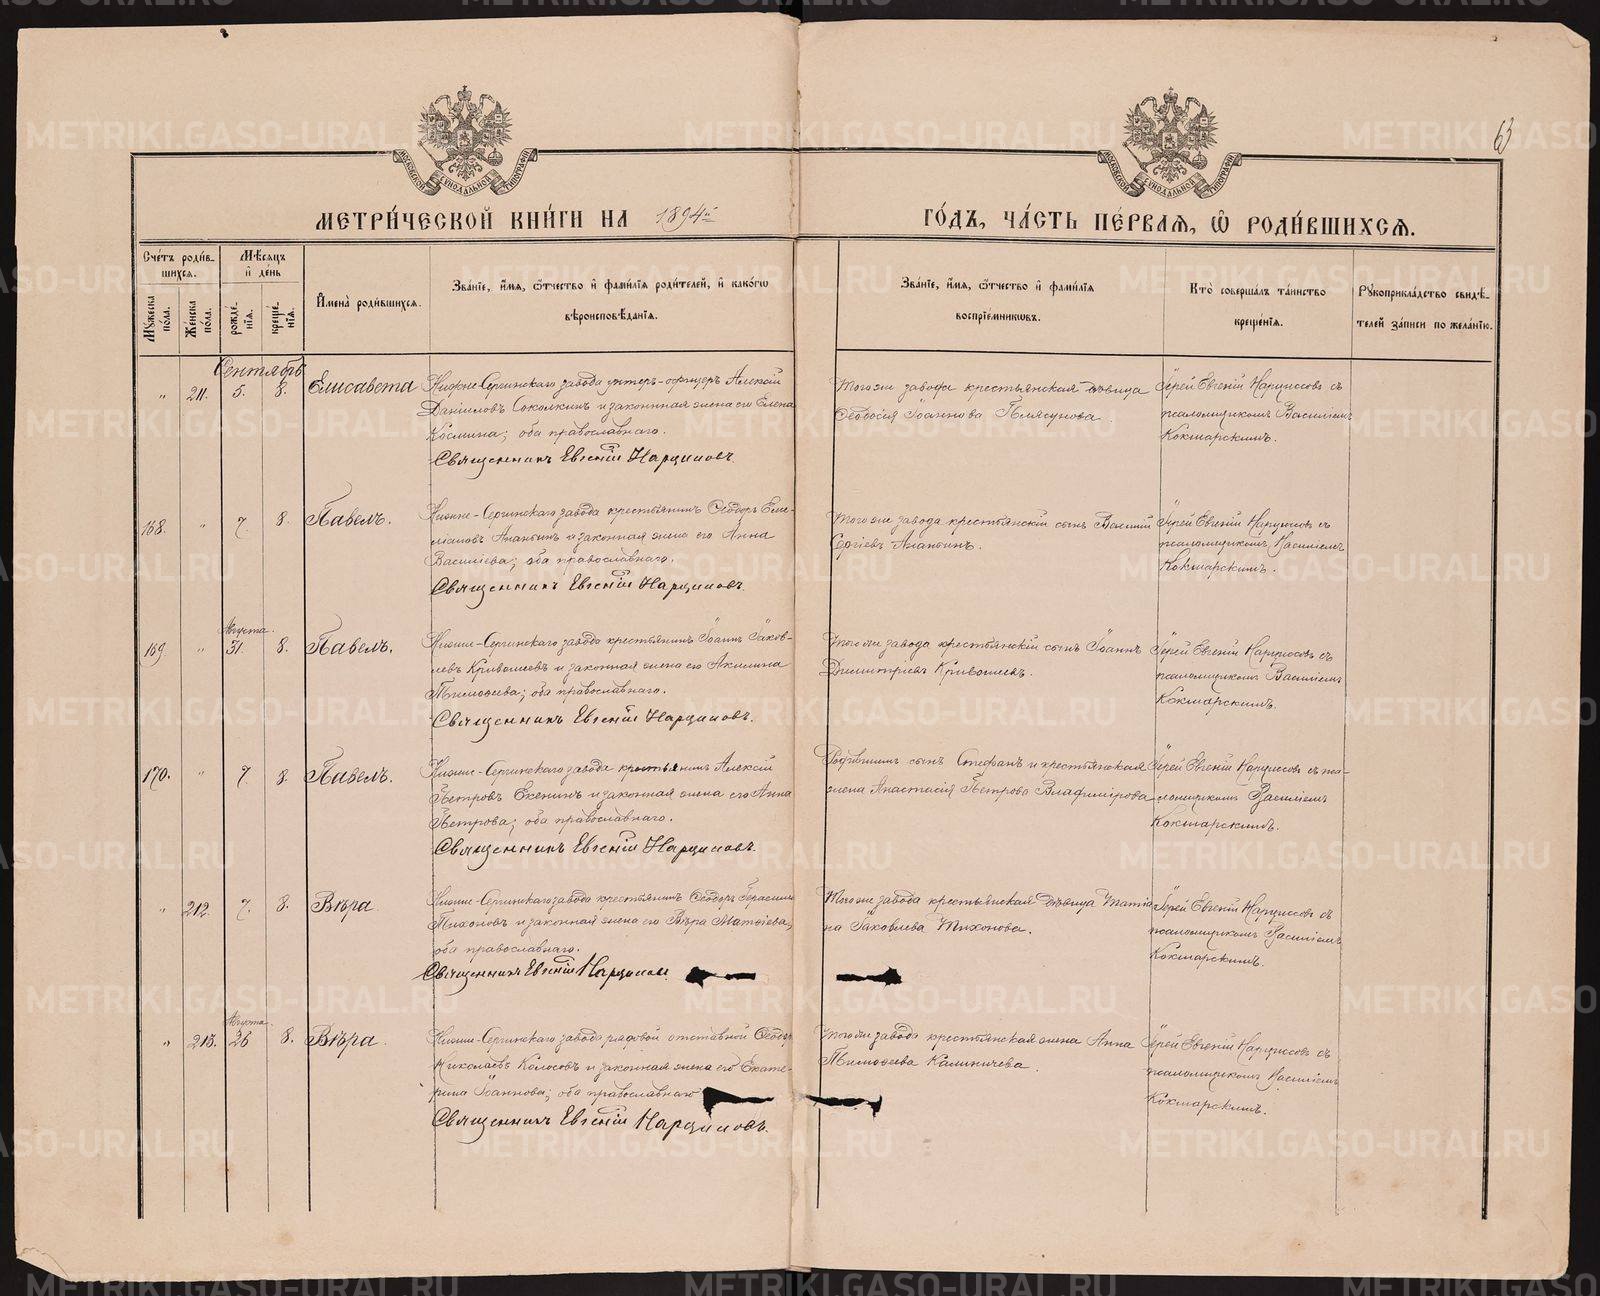 63
МОСКОВСКОЙ СѴНОДАЛЬНОЙ ТИПОГРАФІИ
МОСКОВСКОЙ СѴНОДАЛЬНОЙ ТИПОГРАФІИ
МЕТРИ́ЧЕСКОЙ КНИ́ГИ НА 1894й ГО́ДЪ, ЧА́СТЬ ПЕ́РВАЯ, Ѽ РОДИ́ВШИХСѦ.
Сче́тъ роди́в-
шихсѧ.
Мꙋжеска по́ла.
Же́нска по́ла.
Мѣ́сѧцъ
и҆ де́нь
рожде́-
нїѧ.
креще́-
нїѧ.
И҆мена̀ роди́вшихсѧ.
Зва́нїе, и҆́мѧ, ѻ҆́тчество и҆ фами́лїѧ роди́телей, и҆ како́гѡ
вѣроисповѣ́данїѧ.
Зва́нїе, и҆́мѧ, ѻ҆́тчество и҆ фами́лїѧ
воспрїе́мникѡвъ.
Кто̀ соверша́лъ та́инство
креще́нїѧ.
Рꙋкоприкла́дство свидѣ́-
телей за́писи по жела́нїю.
Сентябрь
" 211. 5. 8. Елисавета
Нижне-Сергинскаго завода унтеръ-офицеръ Алексій
Даніиловъ Соколкинъ и законная жена его Елена
Космина; оба православнаго.
Священникъ Евгеній Нарциссовъ.
Того же завода крестьянская дѣвица
Ѳеодосія Іоаннова Плясунова.
Іерей Евгеній Нарциссовъ съ
псаломщикомъ Василіемъ
Кокшарскимъ.
168. " 7. 8. Павелъ.
Нижне-Сергинскаго завода крестьянинъ Ѳеодоръ Еме-
ліановъ Ананьинъ и законная жена его Анна
Василіева; оба православнаго.
Священникъ Евгеній Нарциссовъ.
Того же завода крестьянскій сынъ Василій
Сергіевъ Ананьинъ.
Іерей Евгеній Нарциссовъ съ
псаломщикомъ Василіемъ
Кокшарскимъ.
Августа
169. " 31. 8. Павелъ.
Нижне-Сергинскаго завода крестьянинъ Іоаннъ Іаков-
левъ Кривошеевъ и законная жена его Акилина
Тимоѳеева; оба православнаго.
Священникъ Евгеній Нарциссовъ.
Того же завода крестьянскій сынъ Іоаннъ
Димитріевъ Кривошеевъ.
Іерей Евгеній Нарциссовъ съ
псаломщикомъ Василіемъ
Кокшарскимъ.
170. " 7 8 Павелъ.
Нижне-Сергинскаго завода крестьянинъ Алексій
Петровъ Екенинъ и законная жена его Анна
Петрова; оба православнаго.
Священникъ Евгеній Нарциссовъ.
Родившимъ сынъ Стефанъ и крестьянская
жена Анастасія Петрова Владимірова
Іерей Евгеній Нарциссовъ съ пса-
ломщикомъ Василіемъ
Кокшарскимъ.
" 212. 7. 8. Вѣра
Нижне-Сергинскаго завода крестьянинъ Ѳеодоръ Герасимовъ
Тихоновъ и законная жена его Вѣра Матѳіева;
оба православнаго.
Священникъ Евгеній Нарциссовъ.
Того же завода крестьянская дѣвица Татіа
на Іаковлева Тихонова.
Іерей Евгеній Нарциссовъ съ
псаломщикомъ Василіемъ
Кокшарскимъ.
Августа
" 213. 26 8. Вѣра.
Нижне-Сергинскаго завода рядовой отставной Ѳеодоръ
Николаевъ Колосовъ и законная жена его Екате-
рина Іоаннова; оба православнаго
Священникъ Евгеній Нарциссовъ.
Того же завода крестьянская жена Анна
Тимоѳеева Калиничева.
Іерей Евгеній Нарциссовъ съ
псаломщикомъ Василіемъ
Кокшарскимъ.
METRIKI.GASO-URAL.RU